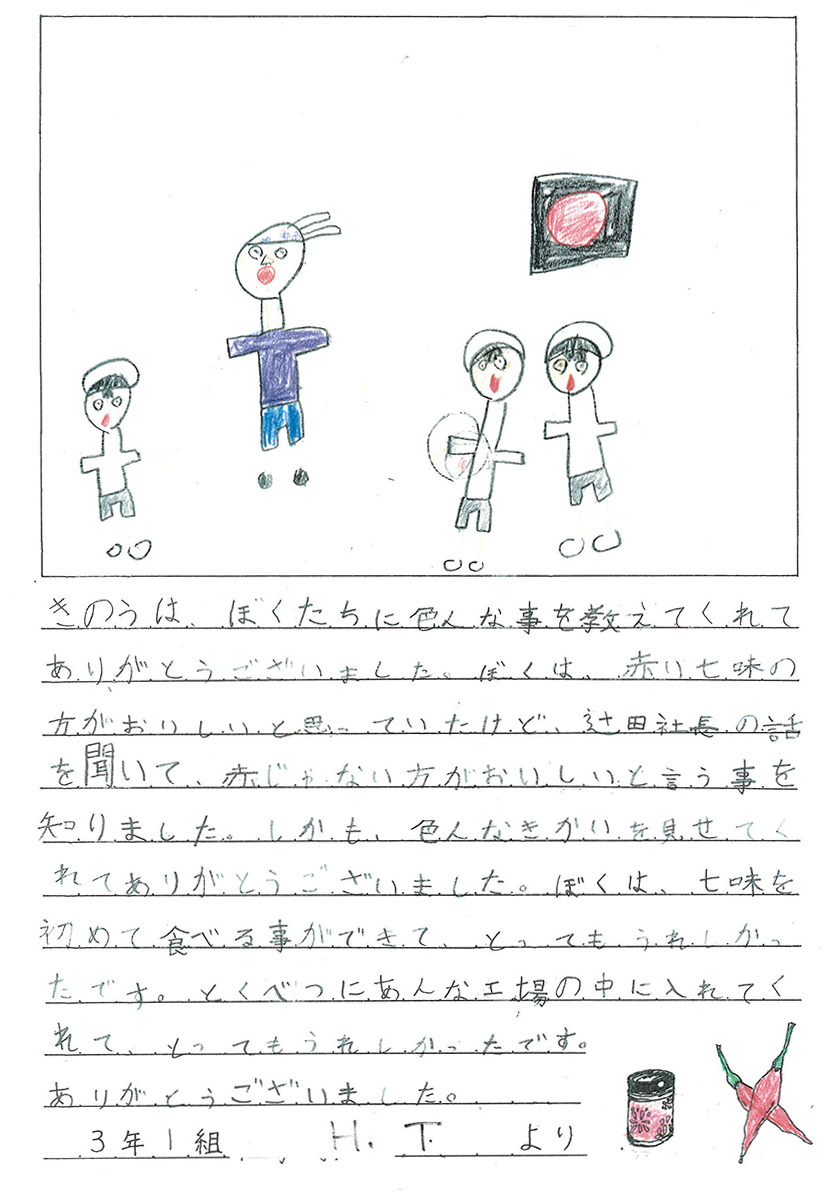 きのうは、ぼくたちに色んな事を教えてくれて
ありがとうございました。ぼくは、赤い七味の
方がおいしいと思っていたけど、辻田社長の話
を聞いて、赤じゃない方がおいしいと言う事を
知りました。しかも、色んなきかいを見せてく
れてありがとうございました。ぼくは、七味を
初めて食べる事ができて、とってもうれしかっ
たです。とくべつにあんな工場の中に入れてく
れて、とってもうれしかったです。
ありがとうございました。
3年1組 H.T より